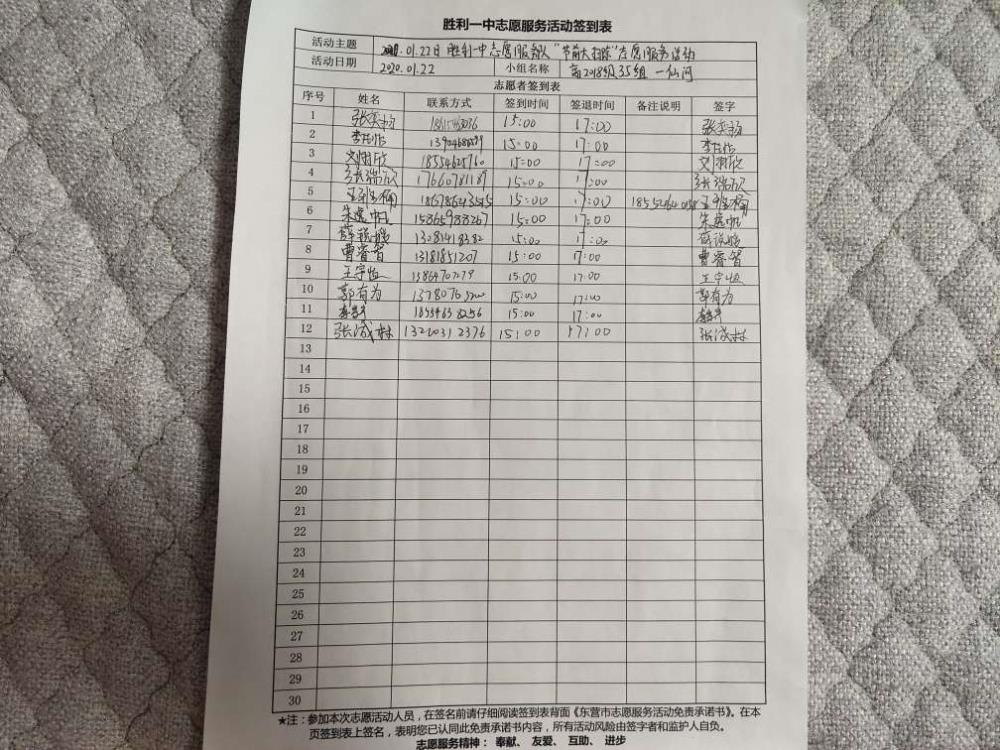 胜利一中志愿服务活动签到表
活动主题 2020.01.22日 胜利一中志愿服务队“节前大扫除”志愿服务活动
活动日期 2020.01.22 小组名称 高2018级35组 一仙河
志愿者签到表
序号 姓名 联系方式 签到时间 签退时间 备注说明 签字
1 15:00 17:00
2 15:00 17:00
3 刘树欣 18554625760 15:00 17:00 刘树欣
4 张瑞欣 17660781189 15:00 17:00 张瑞欣
5 15:00 17:00
6 朱逸帆 15865988267 15:00 17:00 朱逸帆
7 15:00 17:00
8 曹睿智 13181851207 15:00 17:00 曹睿智
9 15:00 17:00
10 郭有为 15:00 17:00 郭有为
11 15:00 17:00
12 13220312376 15:00 17:00
13
14
15
16
17
18
19
20
21
22
23
24
25
26
27
28
29
30
★注：参加本次志愿活动人员，在签名前请仔细阅读签到表背面《东营市志愿服务活动免责承诺书》。在本
页签到表上签名，表明您已认同此免责承诺书内容，所有活动风险由签字者和监护人自负。
志愿服务精神：奉献、友爱、互助、进步